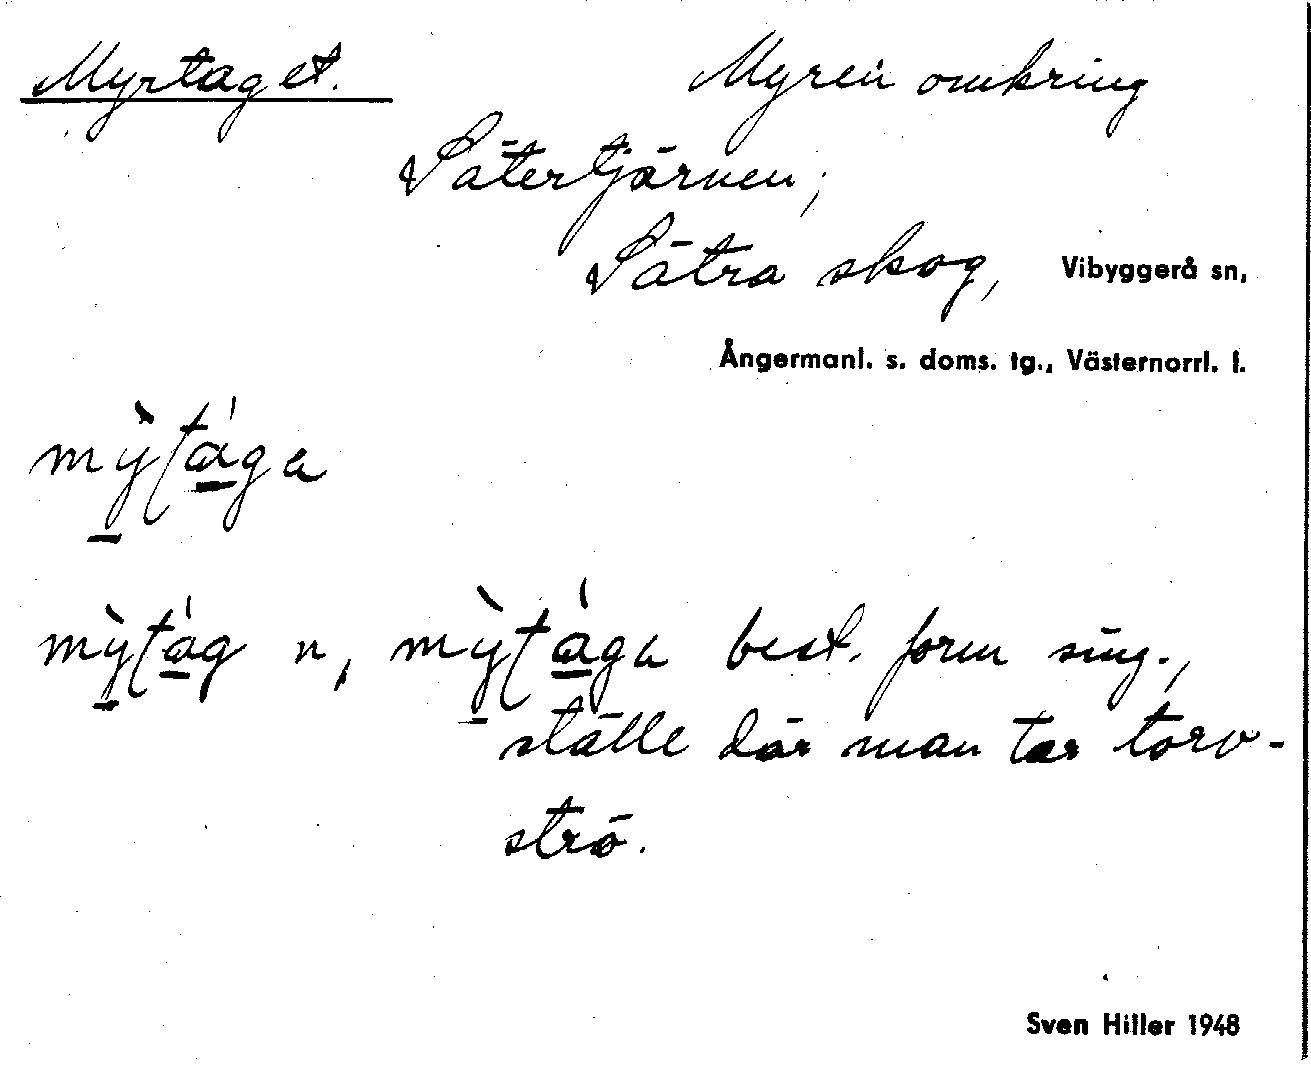 Myrtaget. Myren omkring
Sätertjärnen,
Sätra skog, Vibyggerå sn,
Ångermanl. s. doms. tg., Västernorrl. l.
mỳʃtága
mỳʃtág n, mỳʃtága best. form sing.,
ställe där man tar torv-
strö.
Sven Hiller 1948